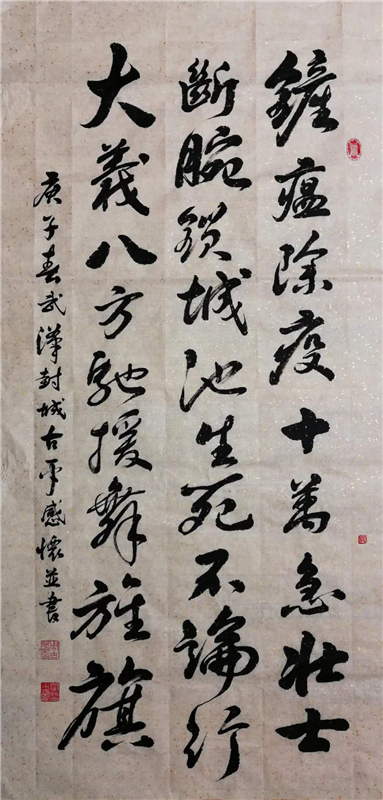 鏟瘟除疫十萬急壯士
斷腕鎖城池生死不論行
大義八方馳援舞旌旗
庚子春武漢封城古平感懷並書